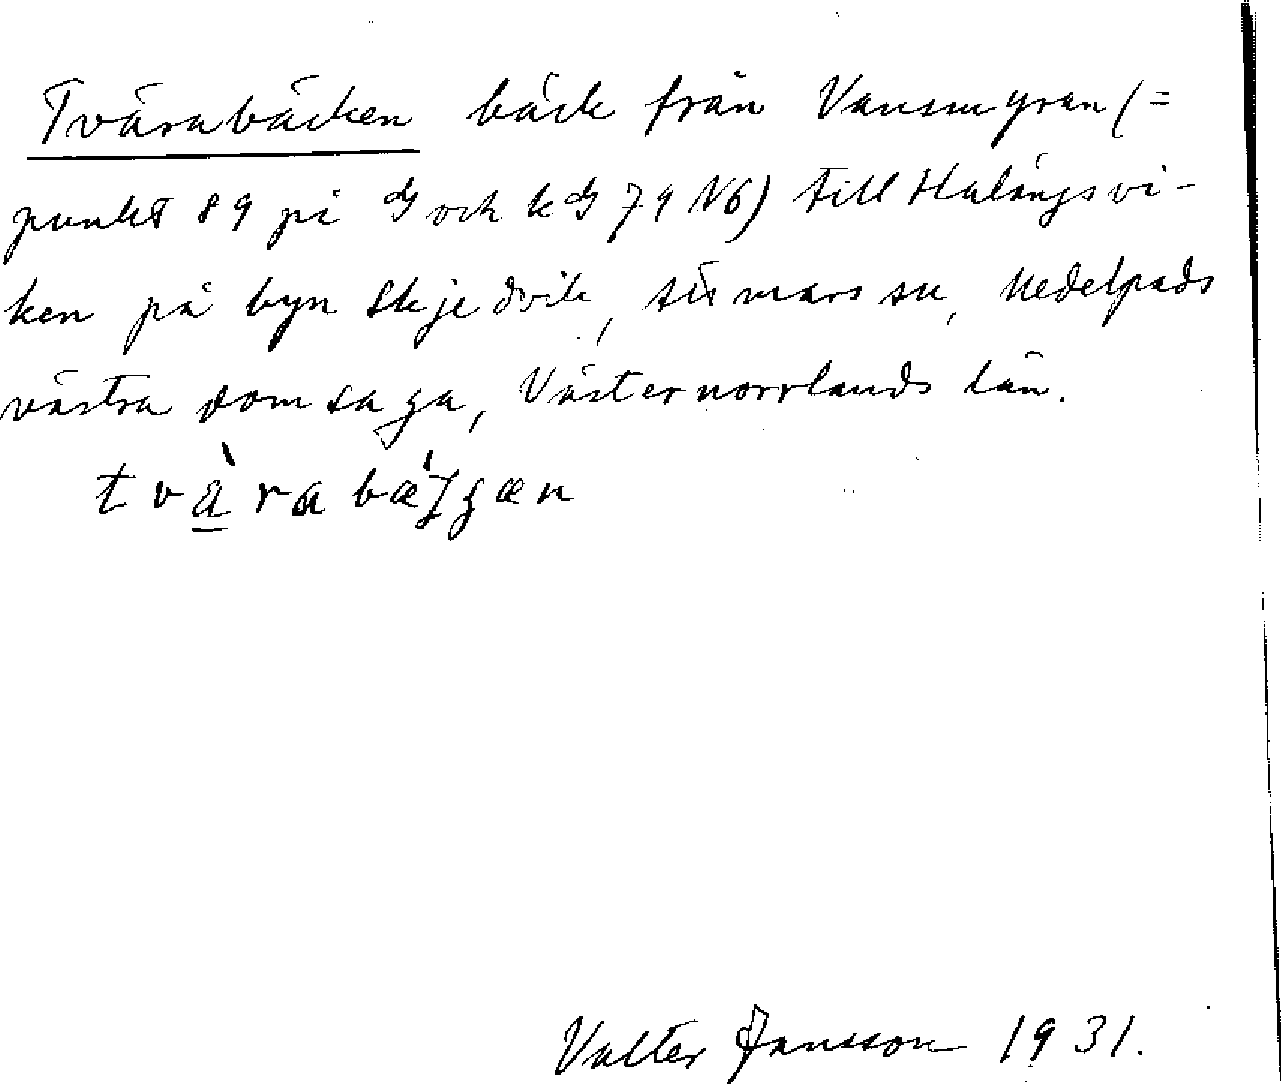 Tvärabäcken bäck från Vansmyran (=
punkt 89 på G och k G 79 N6) till Hulångsvi-
ken på byn Skjedvik, Lis mars sn, Medelpads
västra domsaga, Västernorrlands län.
två̀ra bæ'ʃgæn
Valter Jansson 1931.